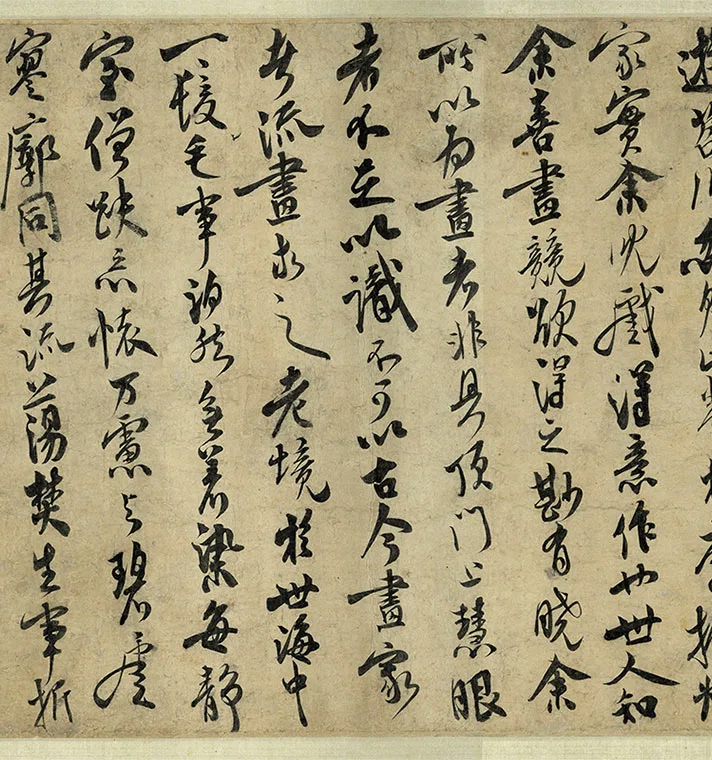 家實余兒戲得意作也世人知
余喜畫競欲得之尠有曉余
所以為畫者非具頂門上慧眼
者不足以識不可以古今畫家
者流畫求之老境於世海中
一髮毛事泊然無著染每靜
室僧趺忘懷万慮与碧虛
寥廓同其流蕩焚生事折